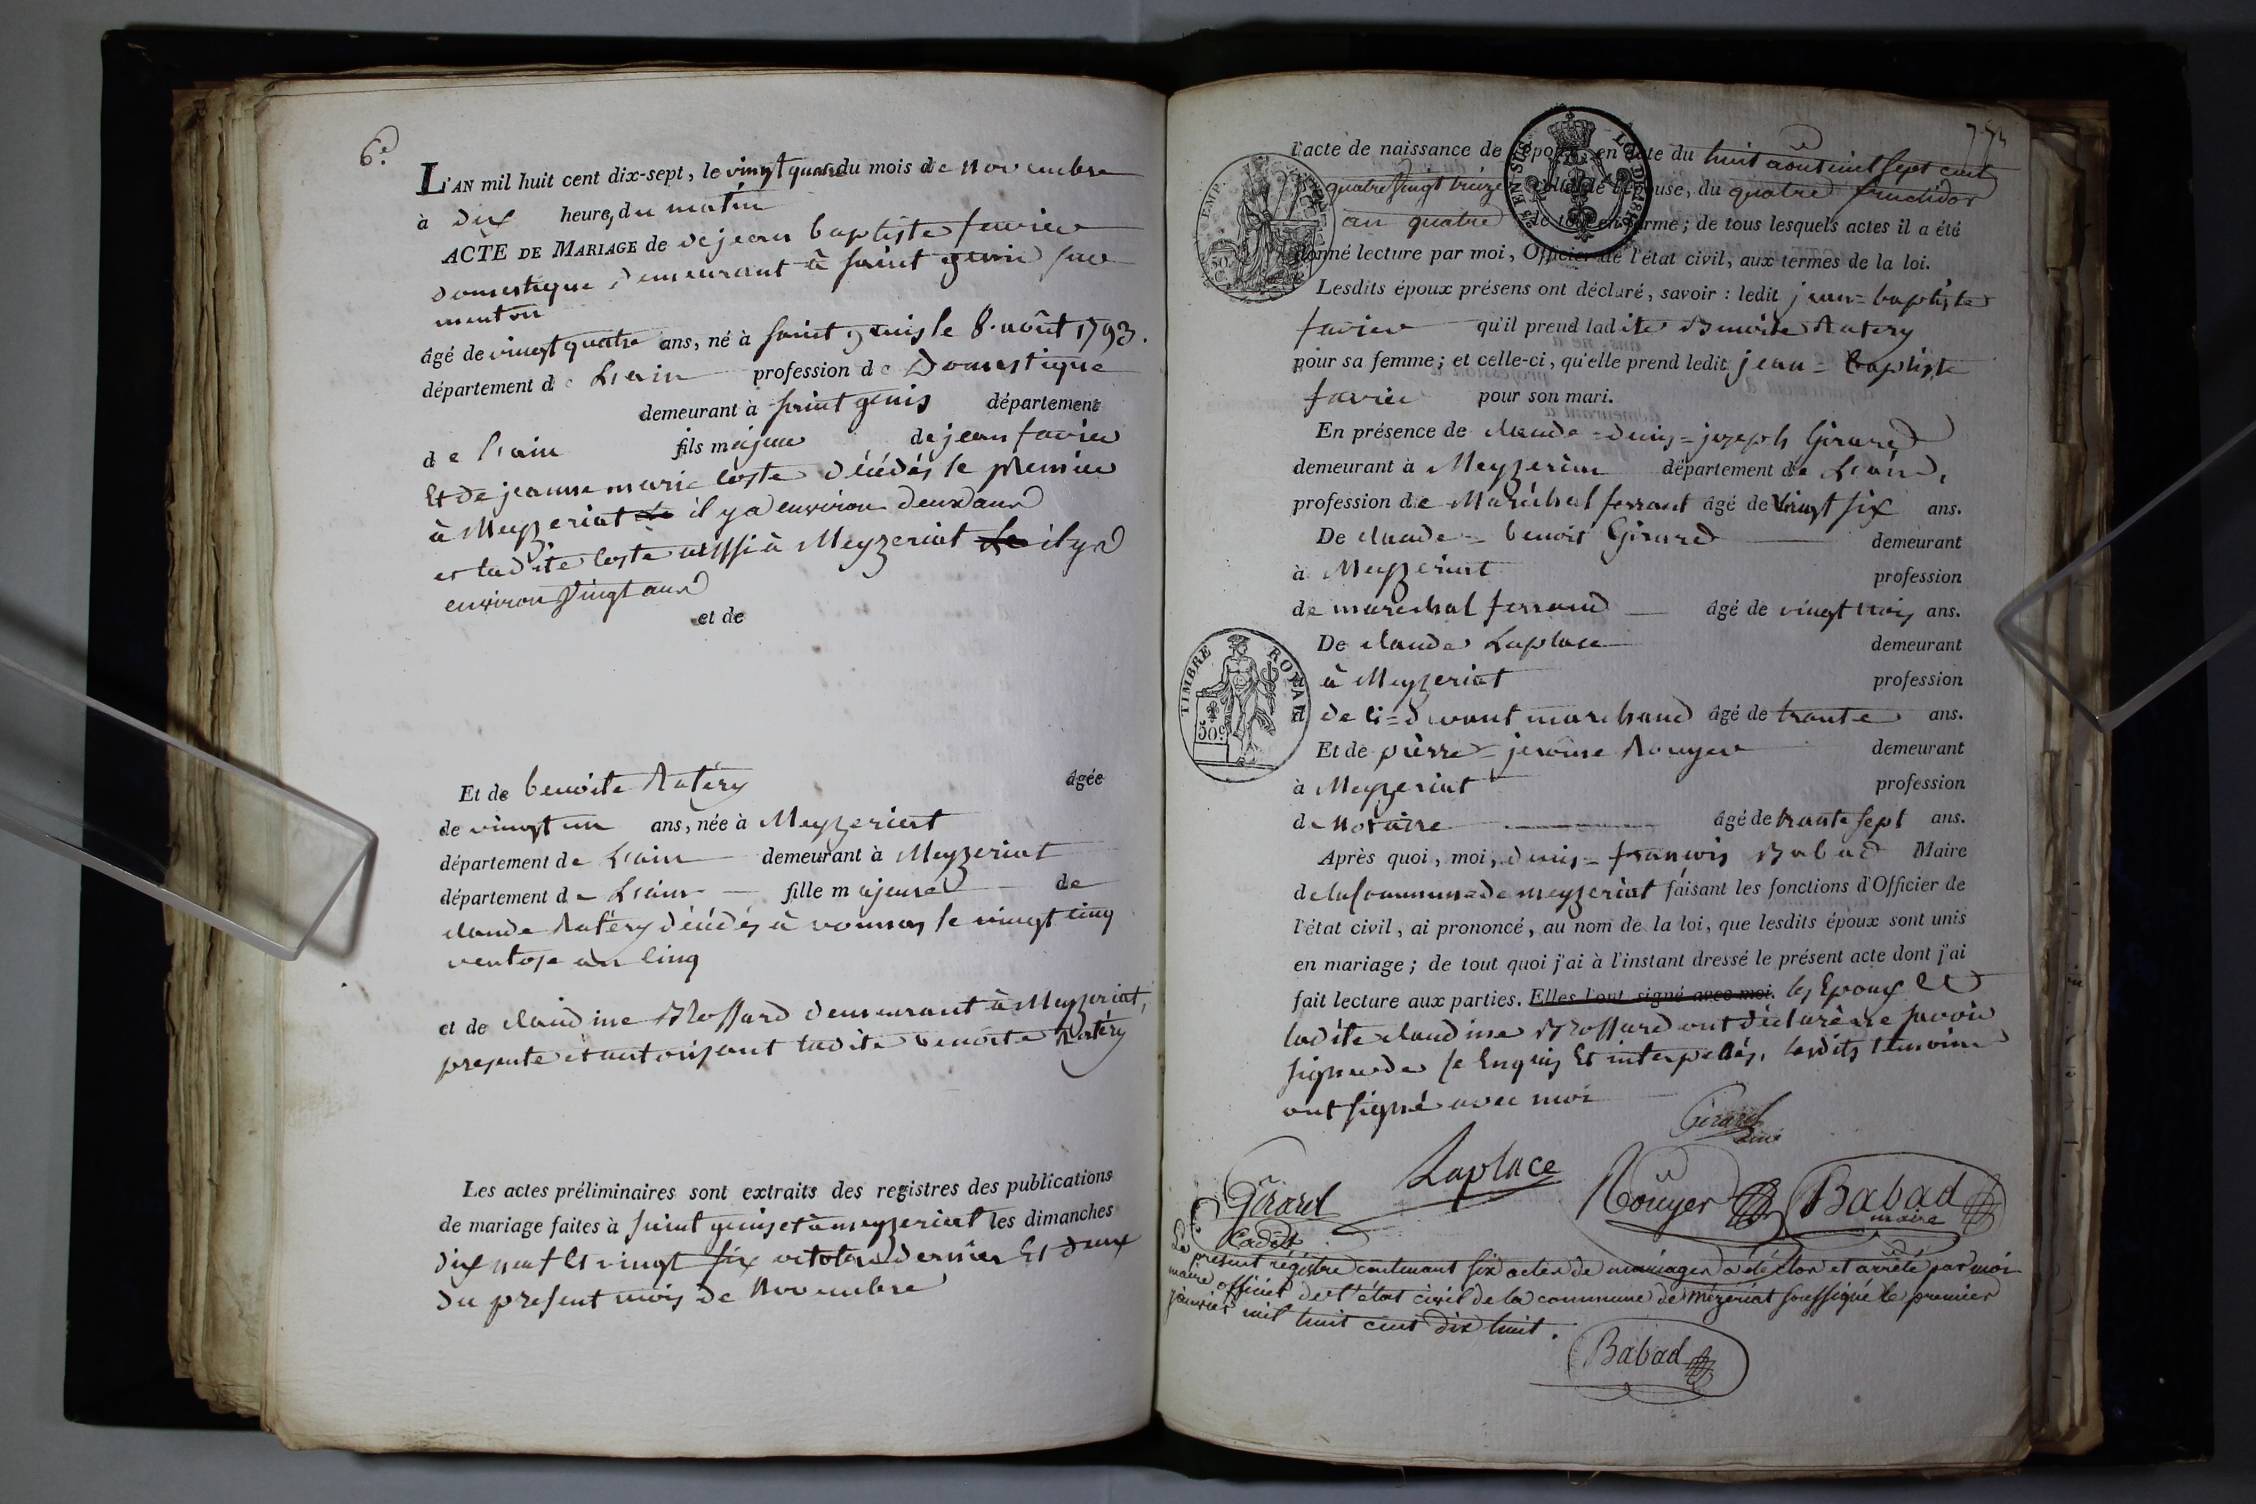 6.e
L'AN mil huit cent dix-sept, le vingt quatre du mois de novembre
à dix heure, du matin
ACTE DE MARIAGE de de jean baptiste favier
domestique, demeurant à saint genis sur
menton
âgé de vingt quatre ans, né à saint genis le 8. août 1793.
département de L'ain profession de Domestique
demeurant à saint genis département
de l'ain fils majeur de jean favier
Et de jeanne marie coste décédés le premier
à Meyzeriat il y a environ deux ans
et ladite coste aussi à Meyzeriat il y a
environ vingt ans
et de
Et de benoite Ratéry âgée
de vingt un ans, née à Meyzeriat
département de L'ain demeurant à Meyzeriat
département de L'ain fille majeure de
claude Ratéry décédés à vonnas le vingt cinq
ventose an cinq
et de claudine Brossard demeurant à Meyzeriat,
presente et autorisant ladite benoite Ratéry
Les actes préliminaires sont extraits des registres des publications
de mariage faites à saint genis et à meyzeriat les dimanches
dix neuf et vingt six octobre dernier Et deux
du present mois de Novembre
l'acte de naissance de l'époux, en date du huit août mil sept cent
quatre vingt treize celui de l'épouse, du quatre fructidor
an quatre le tout en forme; de tous lesquels actes il a été
donné lecture par moi, Officier de l'état civil, aux termes de la loi.
Lesdits époux présens ont déclaré, savoir : ledit jean=baptiste
favier qu'il prend ladite Benoite Ratery
pour sa femme; et celle-ci, qu'elle prend ledit jean=Baptiste
favier pour son mari.
En présence de claude=denis=joseph Girard
demeurant à Meyzeriat département de L'ain,
profession de Maréchal ferrant âgé de vingt six ans.
De claude=benoit Girard demeurant
à Meyzeriat profession
de marechal ferrand âgé de vingt trois ans.
De claude Laplace demeurant
à Meyzeriat profession
de ci=devant marchand âgé de trante ans.
Et de pierre=jerôme Rouyer demeurant
à Meyzeriat profession
de notaire âgé de trante sept ans.
Après quoi, moi, denis=françois Babad Maire
de la Commune de meyzeriat faisant les fonctions d'Officier de
l'état civil, ai prononcé, au nom de la loi, que lesdits époux sont unis
en mariage; de tout quoi j'ai à l'instant dressé le présent acte dont j'ai
fait lecture aux parties. Elles l'ont signé avec moi. les Epoux et
ladite claudine Brossard ont déclaré ne savoir
signer de ce Enquis Et interpellés, lesdits temoins
ont signé avec moi
Girard
ainé
Girard
Cadet
Laplace
Roüyer
Babad
maire
Le présent régistre contenant six actes de mariages a été clos et arrêté par moi
maire officier de l'état civil de la commune de Mézeriat soussigné le premier
janvier mil huit cent dix huit.
Babad
TIMBRE ROYAL
50c